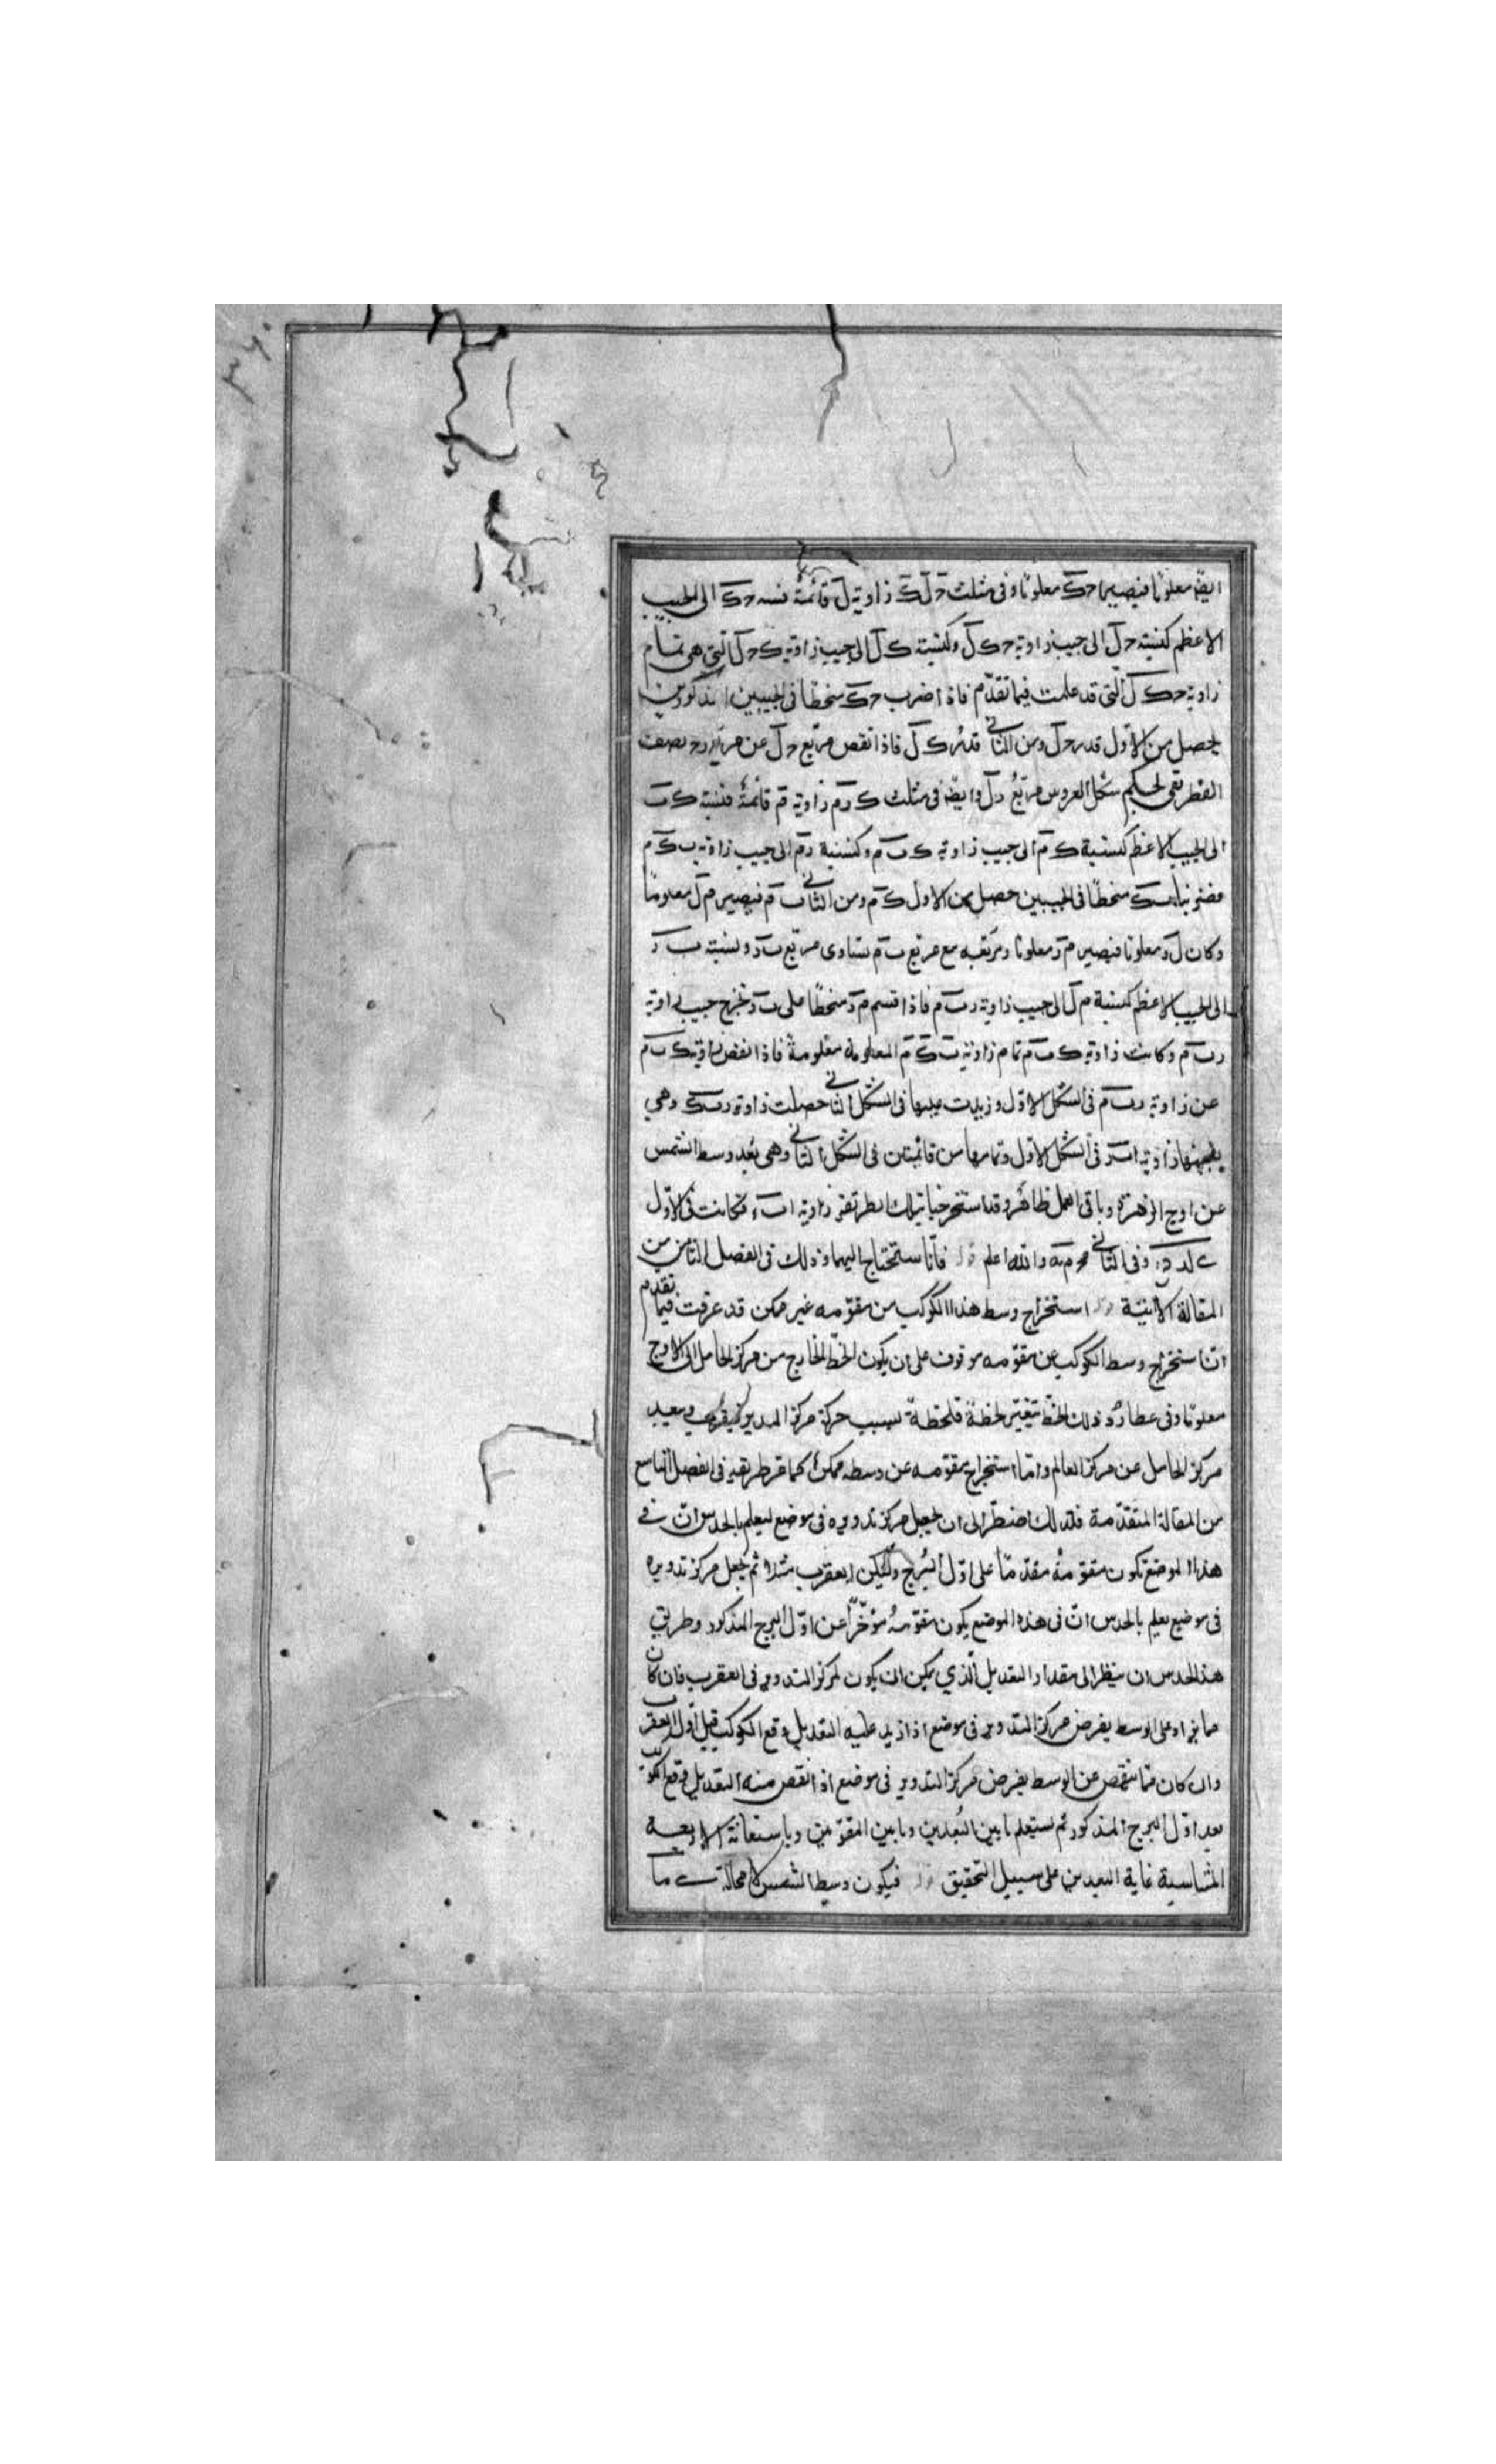 ايضا معلوما فيصير حك معلوما وفى مثلث حل ك زاوية ل قائمة فنسبة حك الى الجيب
الاعظم كنسبة حل الى جيب زاوية حك ل وكنسبة ك ل الى جيب زاوية ك حل التى هى تمام
زاوية حك ل التى قد علمت فيما تقدم فاذا ضرب حك منحطا فى الجيبين المذكورين
يحصل من الاول قدر حل ومن الثانى قدر ك ل فاذا نقص مربع حل عن مربع رح نصف
القطر بقى لحكم شكل العروس مربع رل وايضا فى مثلث ك رم زاوية م قائمة فنسبة ك ب
الى الجيب الاعظم كنسبة ك م الى جيب زاوية ك ب م وكنسبة رم الى جيب زاوية ب ك م
فضربنا ب ك منحطا فى الجيبين حصل من الاول ك م ومن الثانى ب م فيصير م ل معلوما
وكان ل ر معلوما فيصير م ر معلوما ومربعه مع مربع ب م يساوى مربع ب ر ونسبة ب ر
الى الجيب الاعظم كنسبة م ل الى جيب زاوية ر ب م فاذا قسم م ر منحطا على ب ر خرج جيب زاوية
ر ب م وكانت زاوية ك ب م تمام زاوية ب ك م المعلومة معلومة فاذا نقص زاوية ك ب م
عن زاوية ر ب م فى الشكل الاول وزيدت عليها فى الشكل الثانى حصلت زاوية ر ب ك وهى
بعينها زاوية ا ب ر فى الشكل الاول وتمامها من قائمتين فى الشكل الثانى وهى بعد وسط الشمس
عن اوج الزهرة وباقى العمل ظاهر وقد استخرجنا بتلك الطريقة زاوية فكانت فى الاول
وفى الثانى والله اعلم فانا سنحتاج اليهما وذلك فى الفصل الثامن من
المقالة الاتية استخراج وسط هذا الكوكب من مقومه غير ممكن قد عرفت فيما تقدم
ان استخراج وسط الكوكب عن مقومه موقوف على ان يكون الخط الخارج من مركز الحامل الى الاوج
معلوما وفى عطارد ذلك الخط يتغير لحظة فلحظة بسبب حركة مركز المدير فيقرب ويبعد
مركز الحامل عن مركز العالم واما استخراج مقومه عن وسطه ممكن كما مر طريقه فى الفصل التاسع
من المقالة المتقدمة فلذلك اضطر الى ان يجعل مركز تدويره فى موضع ليعلم بالحدس ان فى
هذا الموضع تكون مقومه مقدما على اول البرج وليكن العقرب مثلا ثم جعل مركز تدويره
فى موضع يعلم بالحدس ان فى هذه الموضع يكون مقومه مؤخرا عن اول البرج المذكور وطريق
هذا الحدس ان ينظر الى مقدار التعديل الذي يمكن ان يكون لمركز التدوير فى العقرب فان كان
مما يزاد على الوسط يفرض مركز التدوير فى موضع اذا زيد عليه التعديل وقع الكوكب قبل اول العقرب
وان كان مما ينقص عن الوسط يفرض مركز التدوير فى موضع اذا نقص منه التعديل وقع الكوكب
بعد اول البرج المذكور ثم يستعلم ما بين البعدين وما بين المقومين وباستعانة الاربعة
المتناسبة غاية البعدين على سبيل التحقيق فيكون وسط الشمس لا محالة